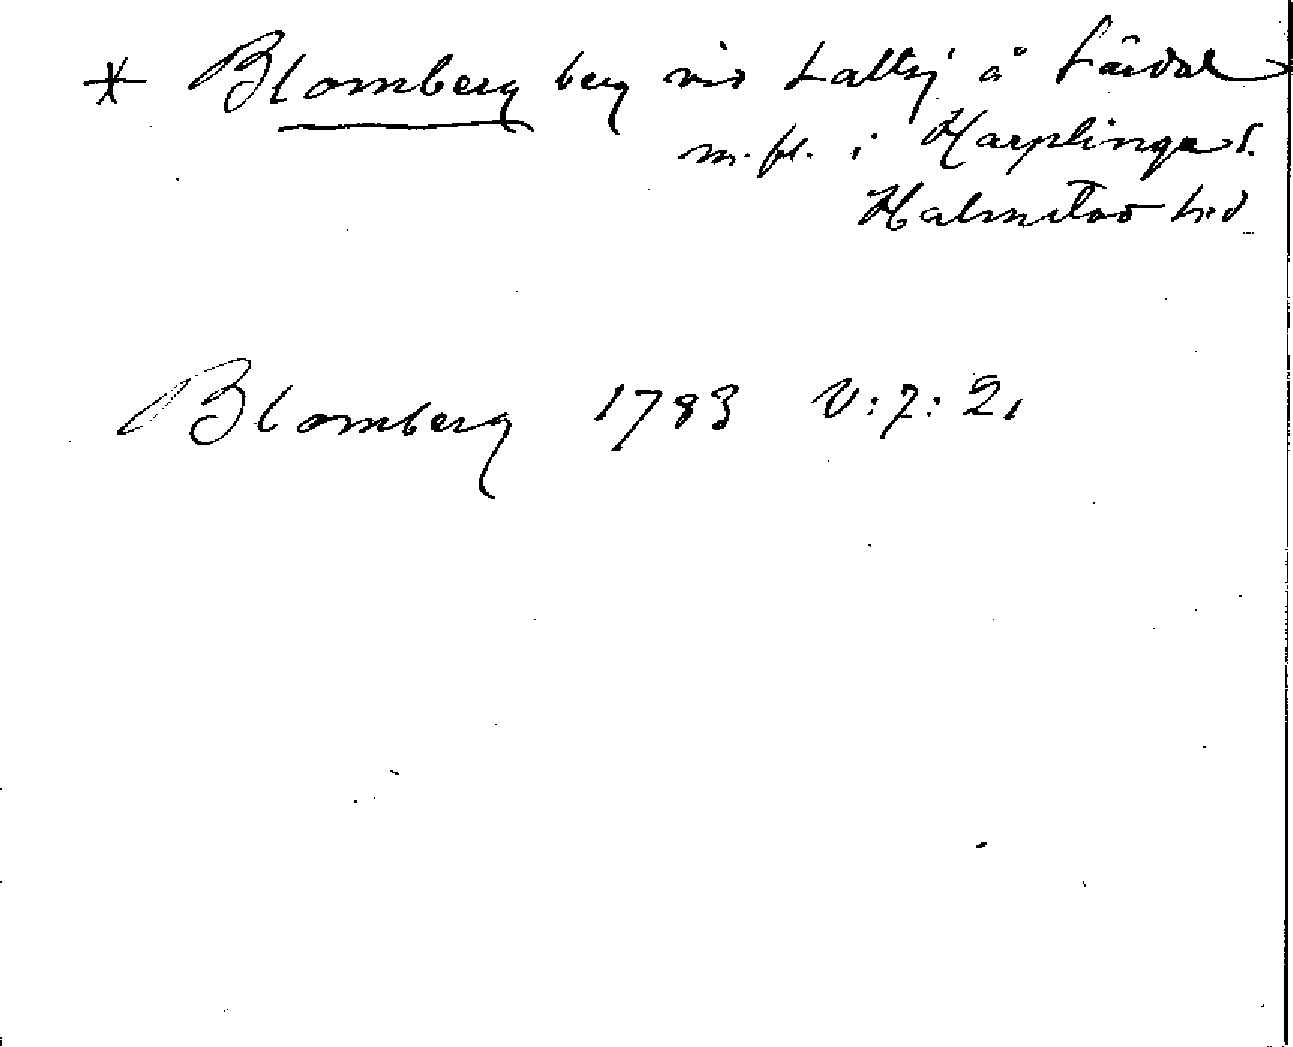 * Blomberg berg vid Lallsj å Särdal
m. fl. i Harplinge s.
Halmstad hd
Blomberg 1783 V:7:2,